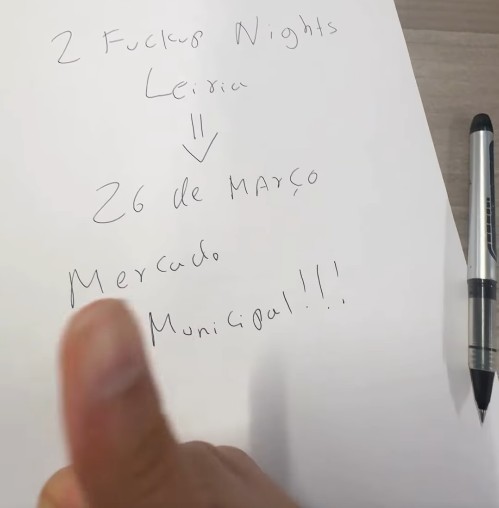 2 Fuckup Nights
Leiria
26 de MArço
Mercado
Municipal!!!